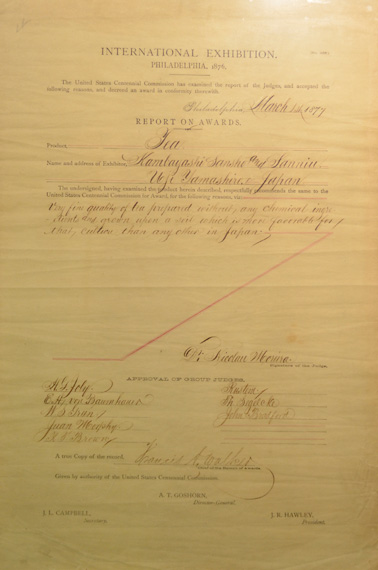 INTERNATIONAL EXHIBITION.
PHILADELPHIA, 1876.
The United States Centennial Commission has examined the report of the Judges, and accepted the
following reasons, and decreed an award in conformity therewith.
Philadelphia, March 1877
REPORT ON AWARDS.
Product, Tea
Name and address of Exhibitor, Kambayashi Sansho and Sannin
Uji Yamashiro Japan
The undersigned, having examined the product herein described, respectfully recommends the same to the
United States Centennial Commission for Award, for the following reasons, viz:
Very fine quality of tea prepared without any chemical ingre
dients, grown upon a soil which is more favorable for
that culture than any other in Japan.
Dr. Nicolau Moreira
Signature of the Judge.
APPROVAL OF GROUP JUDGES.
Juan Morphy
John Bradford
Brown
A true Copy of the record. Francis A. Walker
Chief of the Bureau of Awards.
Given by authority of the United States Centennial Commission.
A. T. GOSHORN,
Director-General.
J. L. CAMPBELL,
Secretary.
J. R. HAWLEY,
President.